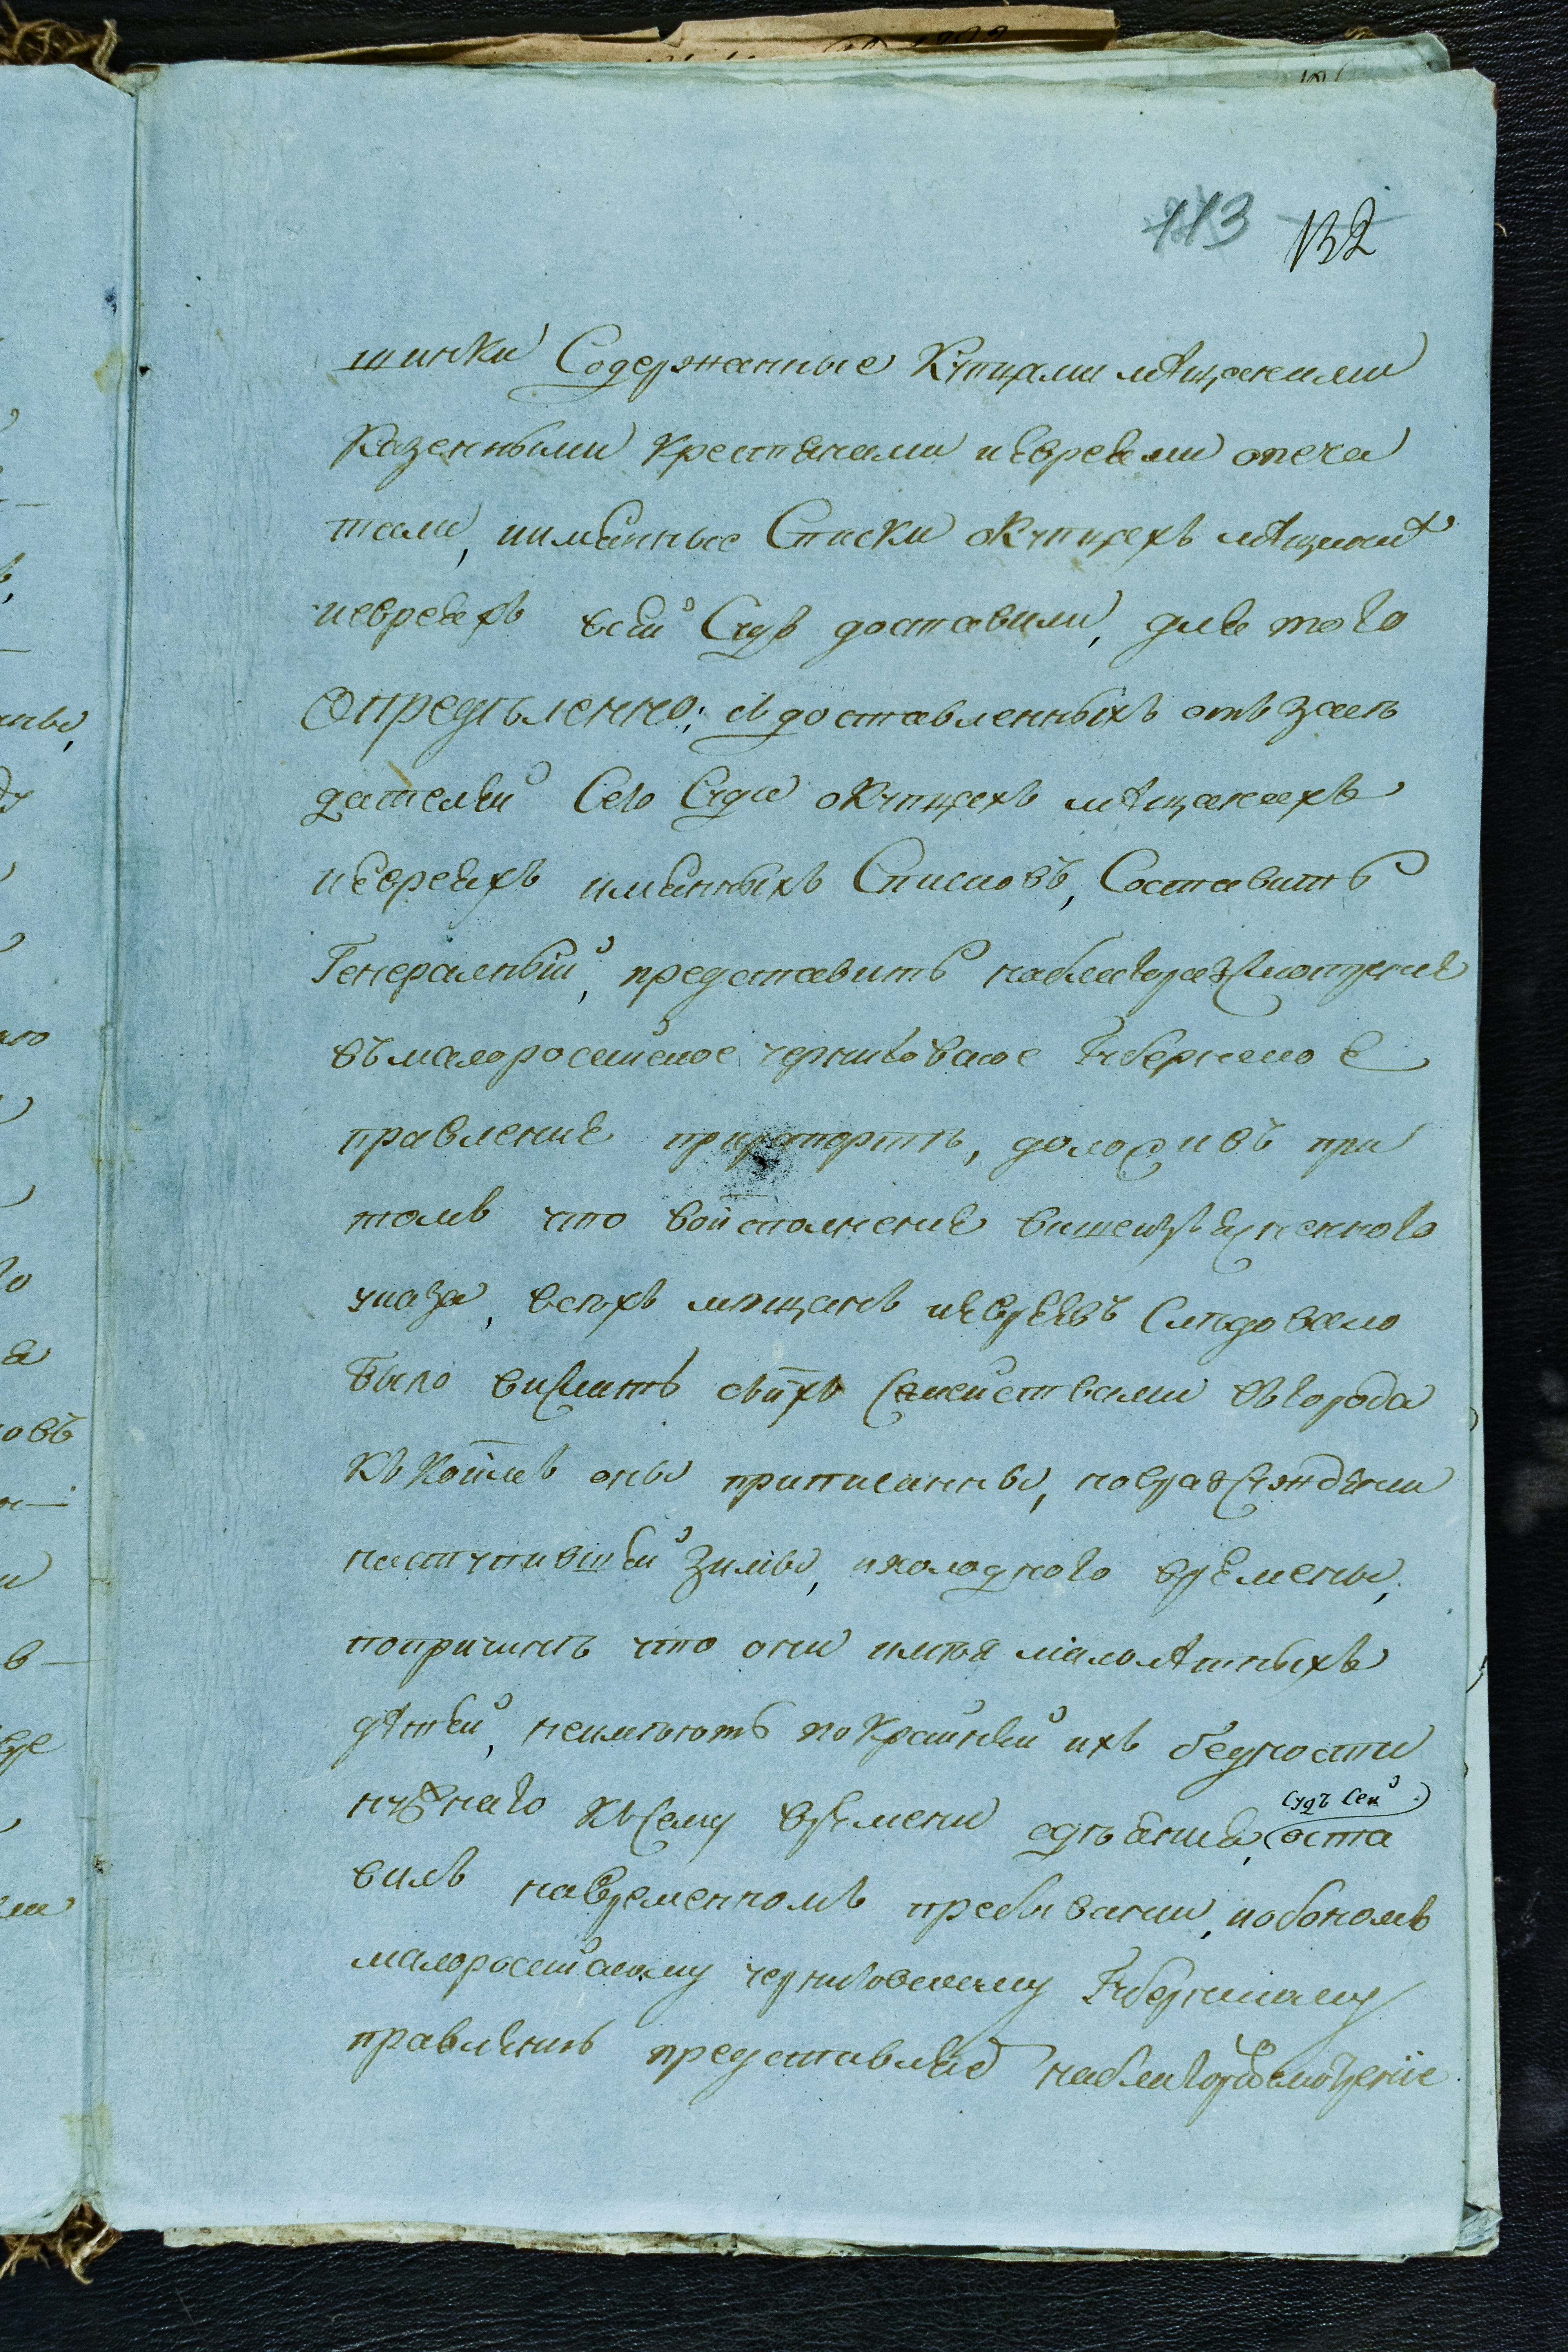 113 132
шинки Содержанные Купцами мѣщанами
Казенными крестянами иевреями опеча
тали, иимянные Списки оКупцахъ мѣщанахъ
иевреяхъ всей Судъ доставили, для того
Опредѣленно; Издоставленныхъ отъ засѣ
дателей Сего Суда оКупцахъ мѣщанахъ
иевреяхъ имянныхъ Списковъ, Составить
Генералный, представить наблагоразсмотрение
въмалоросийское черниговское Губернское
правление прирапортѣ, доложивъ при
томъ что воисполнение вишеизъясненного
указа, всѣхъ мѣщанъ иевреевъ Слѣдовало
было вислать сыхъ Семействами въгорода
къ коимъ оны приписанны, норазсуждении
наступившей зимы, ихолодного времены,
попричинѣ что они имѣя малолѣтныхъ
дѣтей, неимѣютъ покрайней ихъ бедности
нужнаго къСему времени одѣяния, оста
Судъ Сей
вилъ навременномъ пребивании, иобономъ
малоросийскому черниговскому Губернскому
правлению представляе наблагоразсмотрение